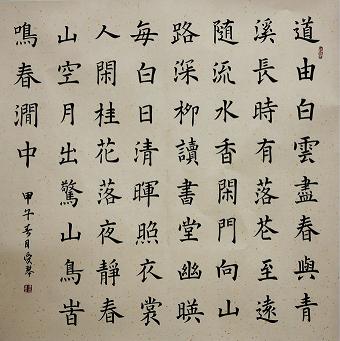 道由白雲盡春與青
溪長時有落花至遠
随流水香閑門向山
路深柳讀書堂幽暎
每白日清暉照衣裳
人閑桂花落夜靜春
山空月出驚山鳥旹
鳴春澗中
甲午春月